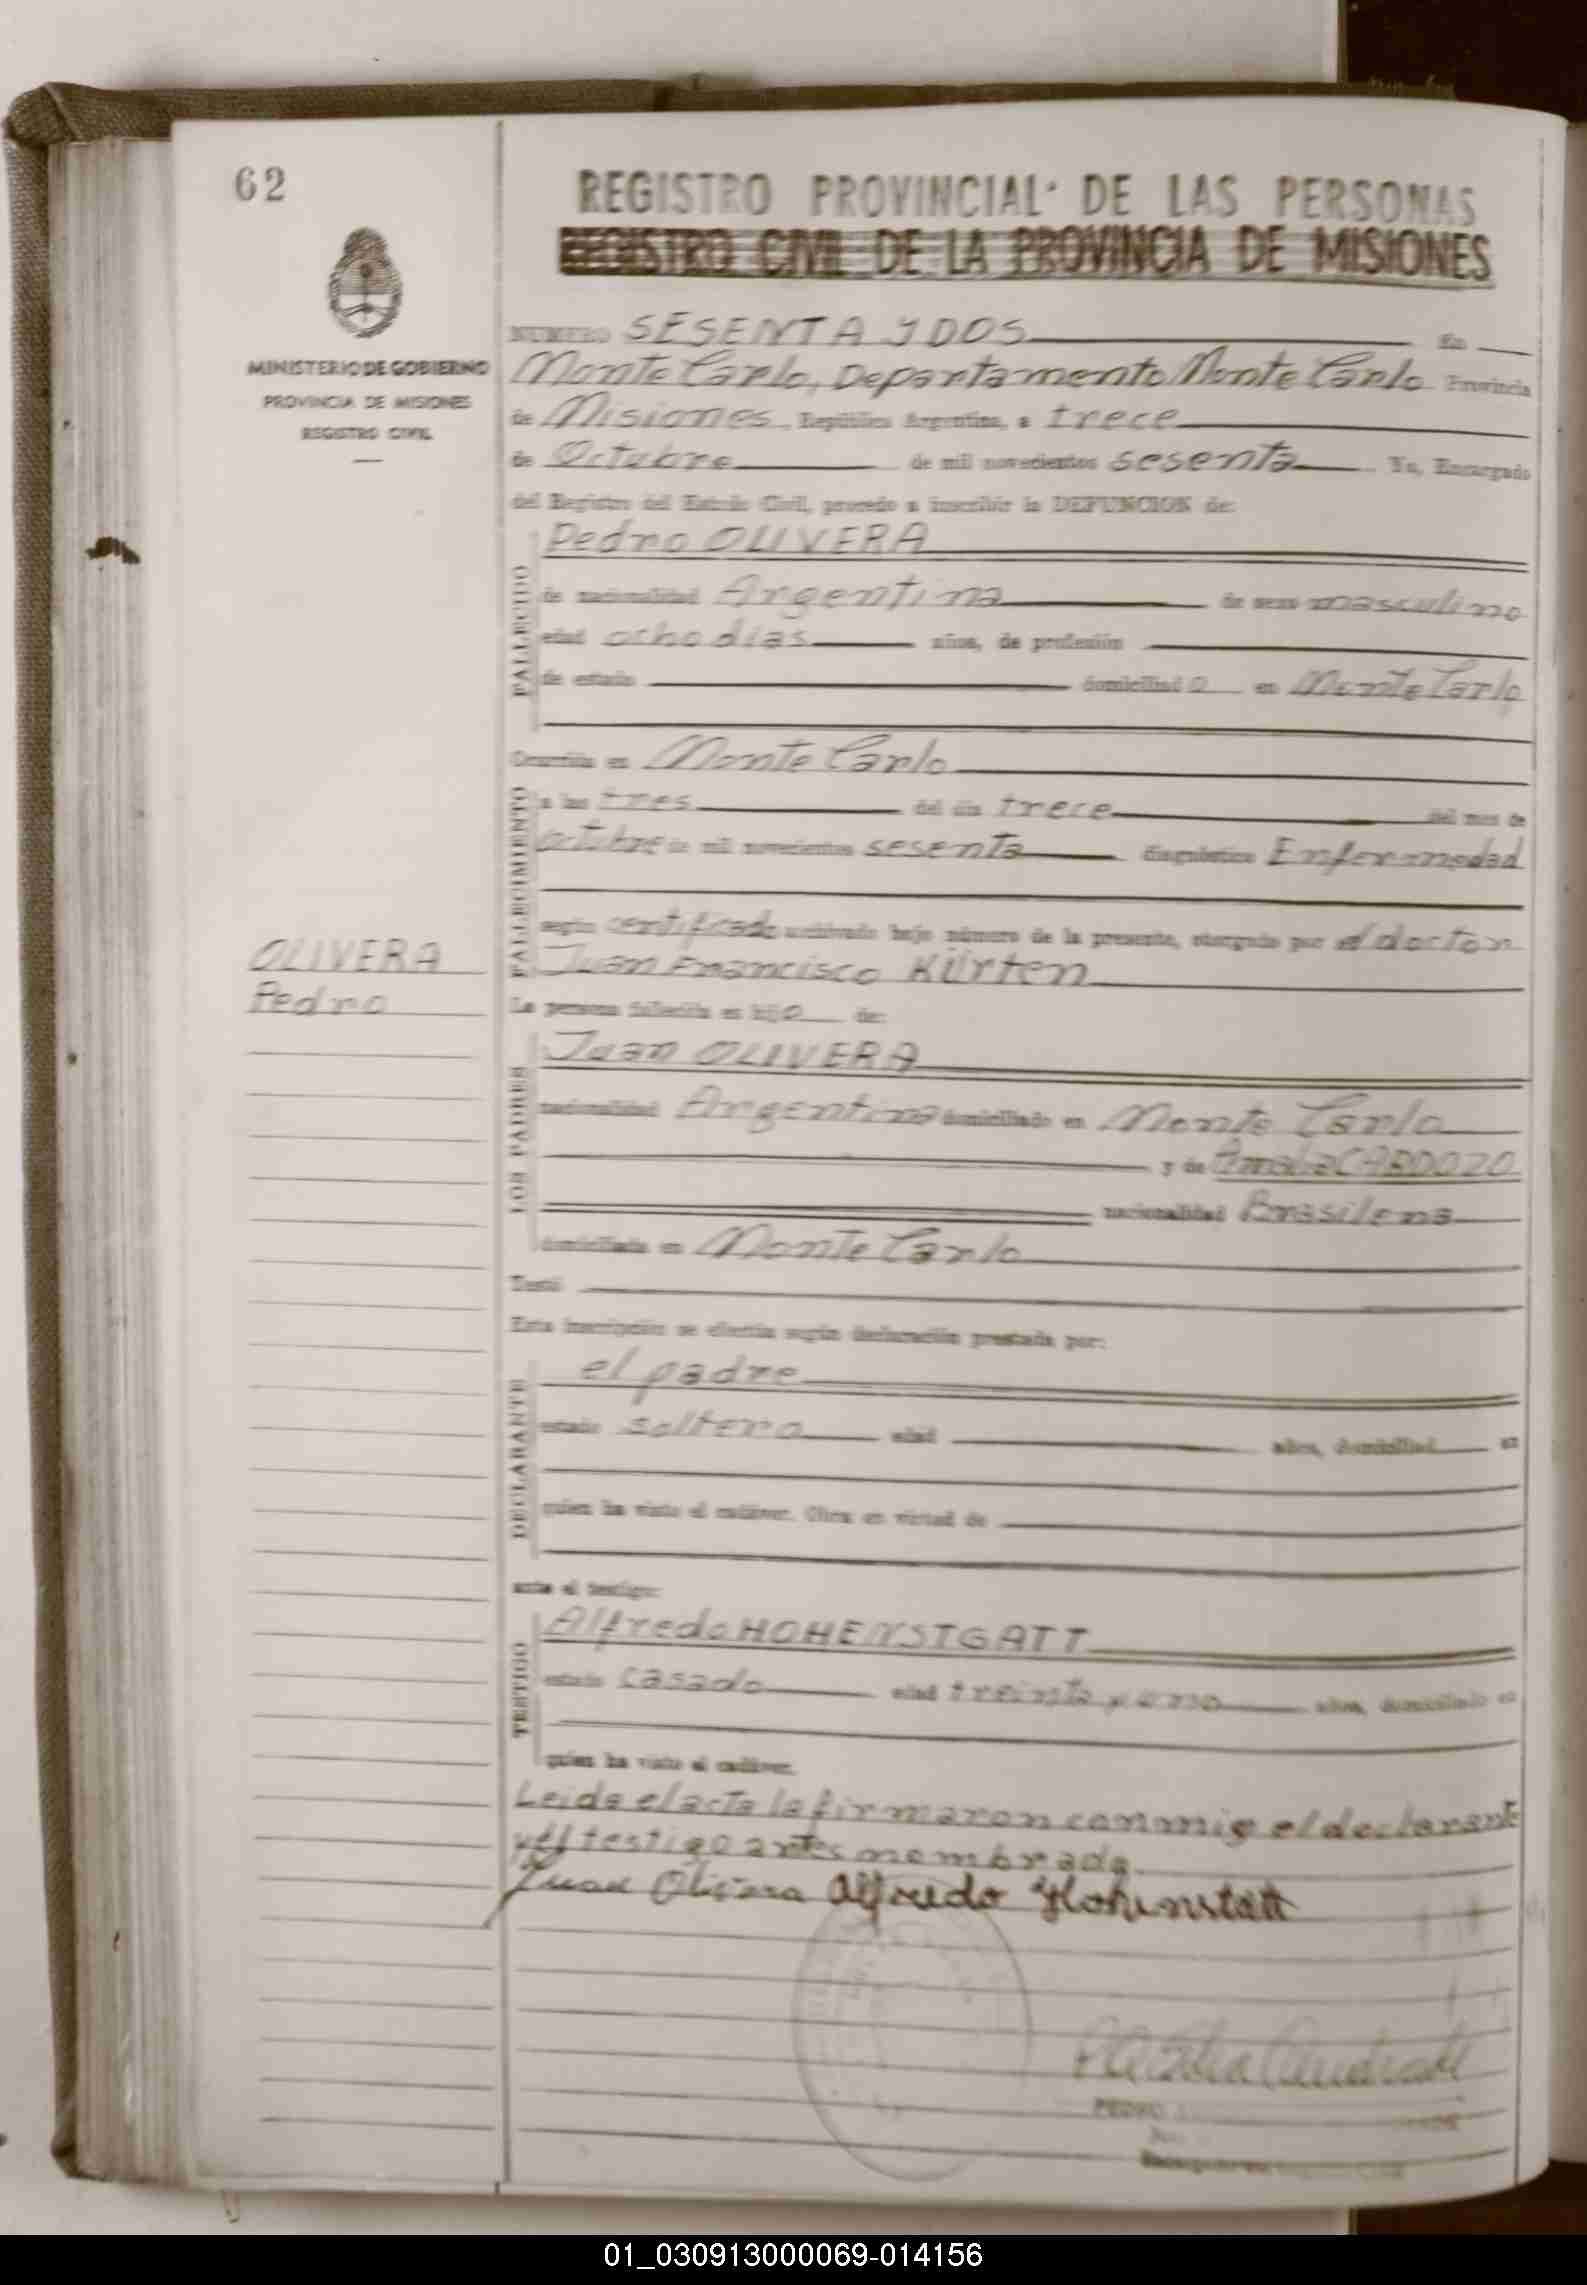 62
REGISTRO PROVINCIAL DE LAS PERSONAS
REGISTRO CIVIL DE LA PROVINCIA DE MISIONES
MINISTERIO DE GOBIERNO
PROVINCIA DE MISIONES
REGISTRO CIVIL
NUMERO SESENTA Y DOS En
Monte Carlo, Departamento Monte Carlo Provincia
de Misiones, República Argentina, a trece
de Octubre de mil novecientos sesenta Yo, Encargado
del Registro del Estado Civil, procedo a inscribir la DEFUNCION de:
FALLECIDO
Pedro OLIVERA
de nacionalidad Argentina de sexo masculino
edad ocho dias años, de profesión
de estado domiciliado en Monte Carlo
Ocurrida en Monte Carlo
FALLECIMIENTO
a las tres del día trece del mes de
octubre de mil novecientos sesenta diagnóstico Enfermedad
según certificado archivado bajo número de la presente, otorgado por el doctor
Juan Francisco Kürten
OLIVERA
Pedro
La persona fallecida es hijo de:
LOS PADRES
Juan OLIVERA
nacionalidad Argentina domiciliado en Monte Carlo
y de Amalia CARDOZO
nacionalidad Brasilena
domiciliada en Monte Carlo
Testó
Esta inscripción se efectúa según declaración prestada por:
DECLARANTE
el padre
estado soltero edad años, domiciliad en
quien ha visto el cadáver. Obra en virtud de
ante el testigo:
TESTIGO
Alfredo HOHENSTGATT
estado casado edad treinta y uno años, domiciliado en
quien ha visto el cadáver.
Leida el acta la firmaron conmigo el declarante
y el testigo antes nombrado.
Juan Olivera Alfredo Hohenstatt
PEDRO
01_030913000069-014156